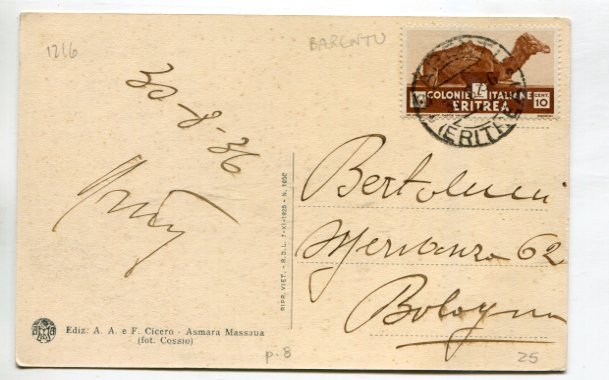 1216
BARENTU
COLONIE ITALIANE
CENT. 10
ERITREA
(ERITREA)
30-8-36
Bertolucci
62
Bologna
RIPR. VIET. - R.D.L. 7-XI-1925 - N. 1950
Ediz: A. A. e F. Cicero - Asmara Massaua
(fot. Cossio)
p. 8
25